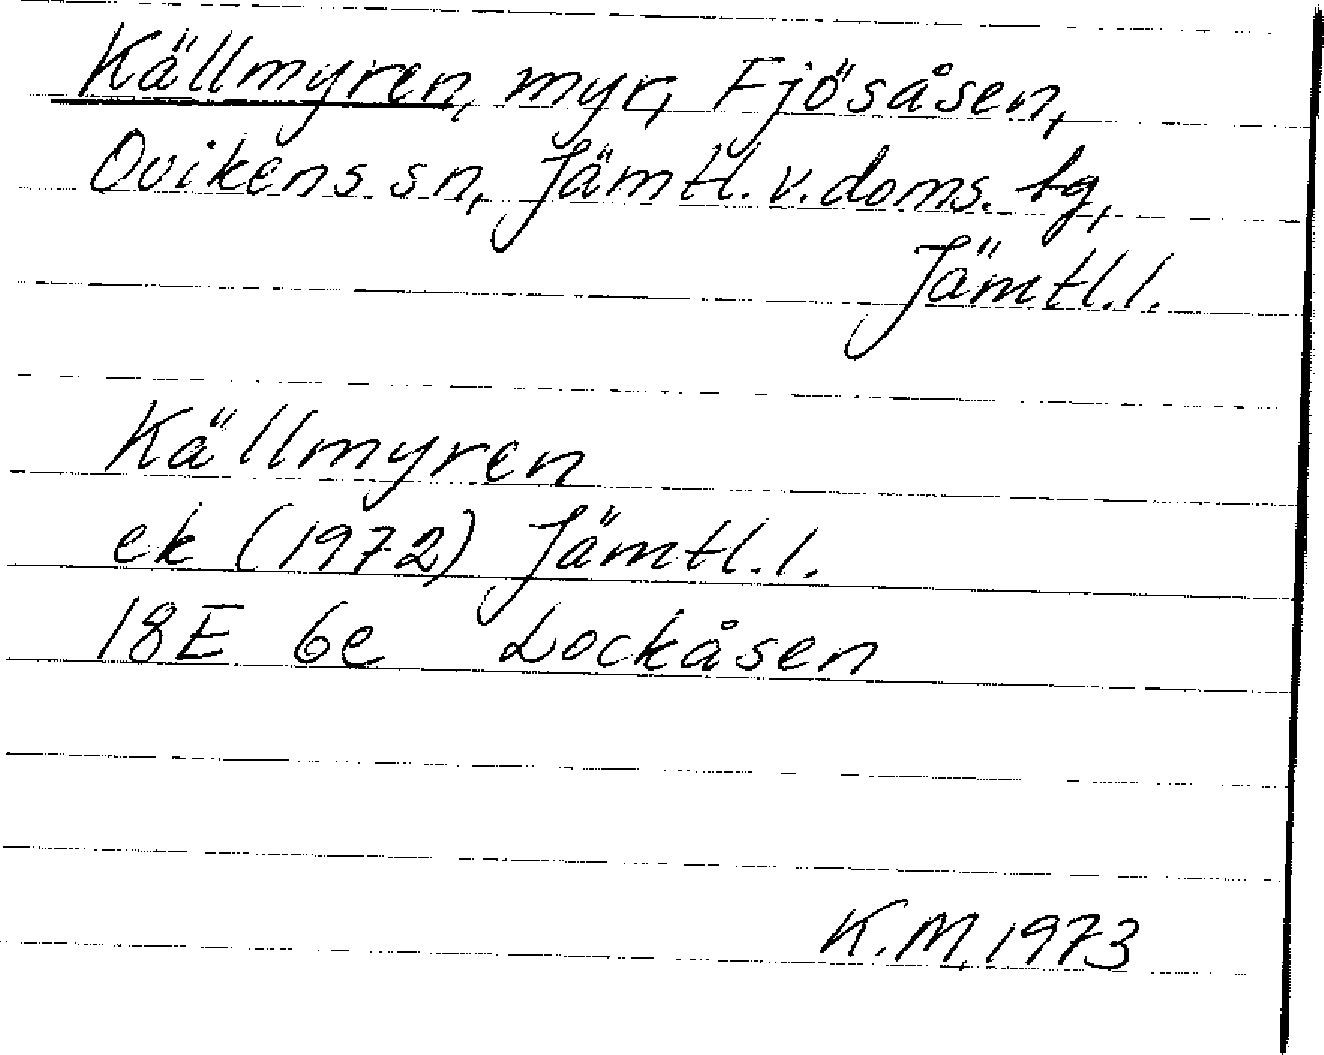 Källmyren, myr, Fjösåsen,
Ovikens sn, Jämtl. v. doms. tg,
Jämtl. l.
Källmyren
ek (1972) Jämtl. l.
18E 6e Lockåsen
K.M. 1973